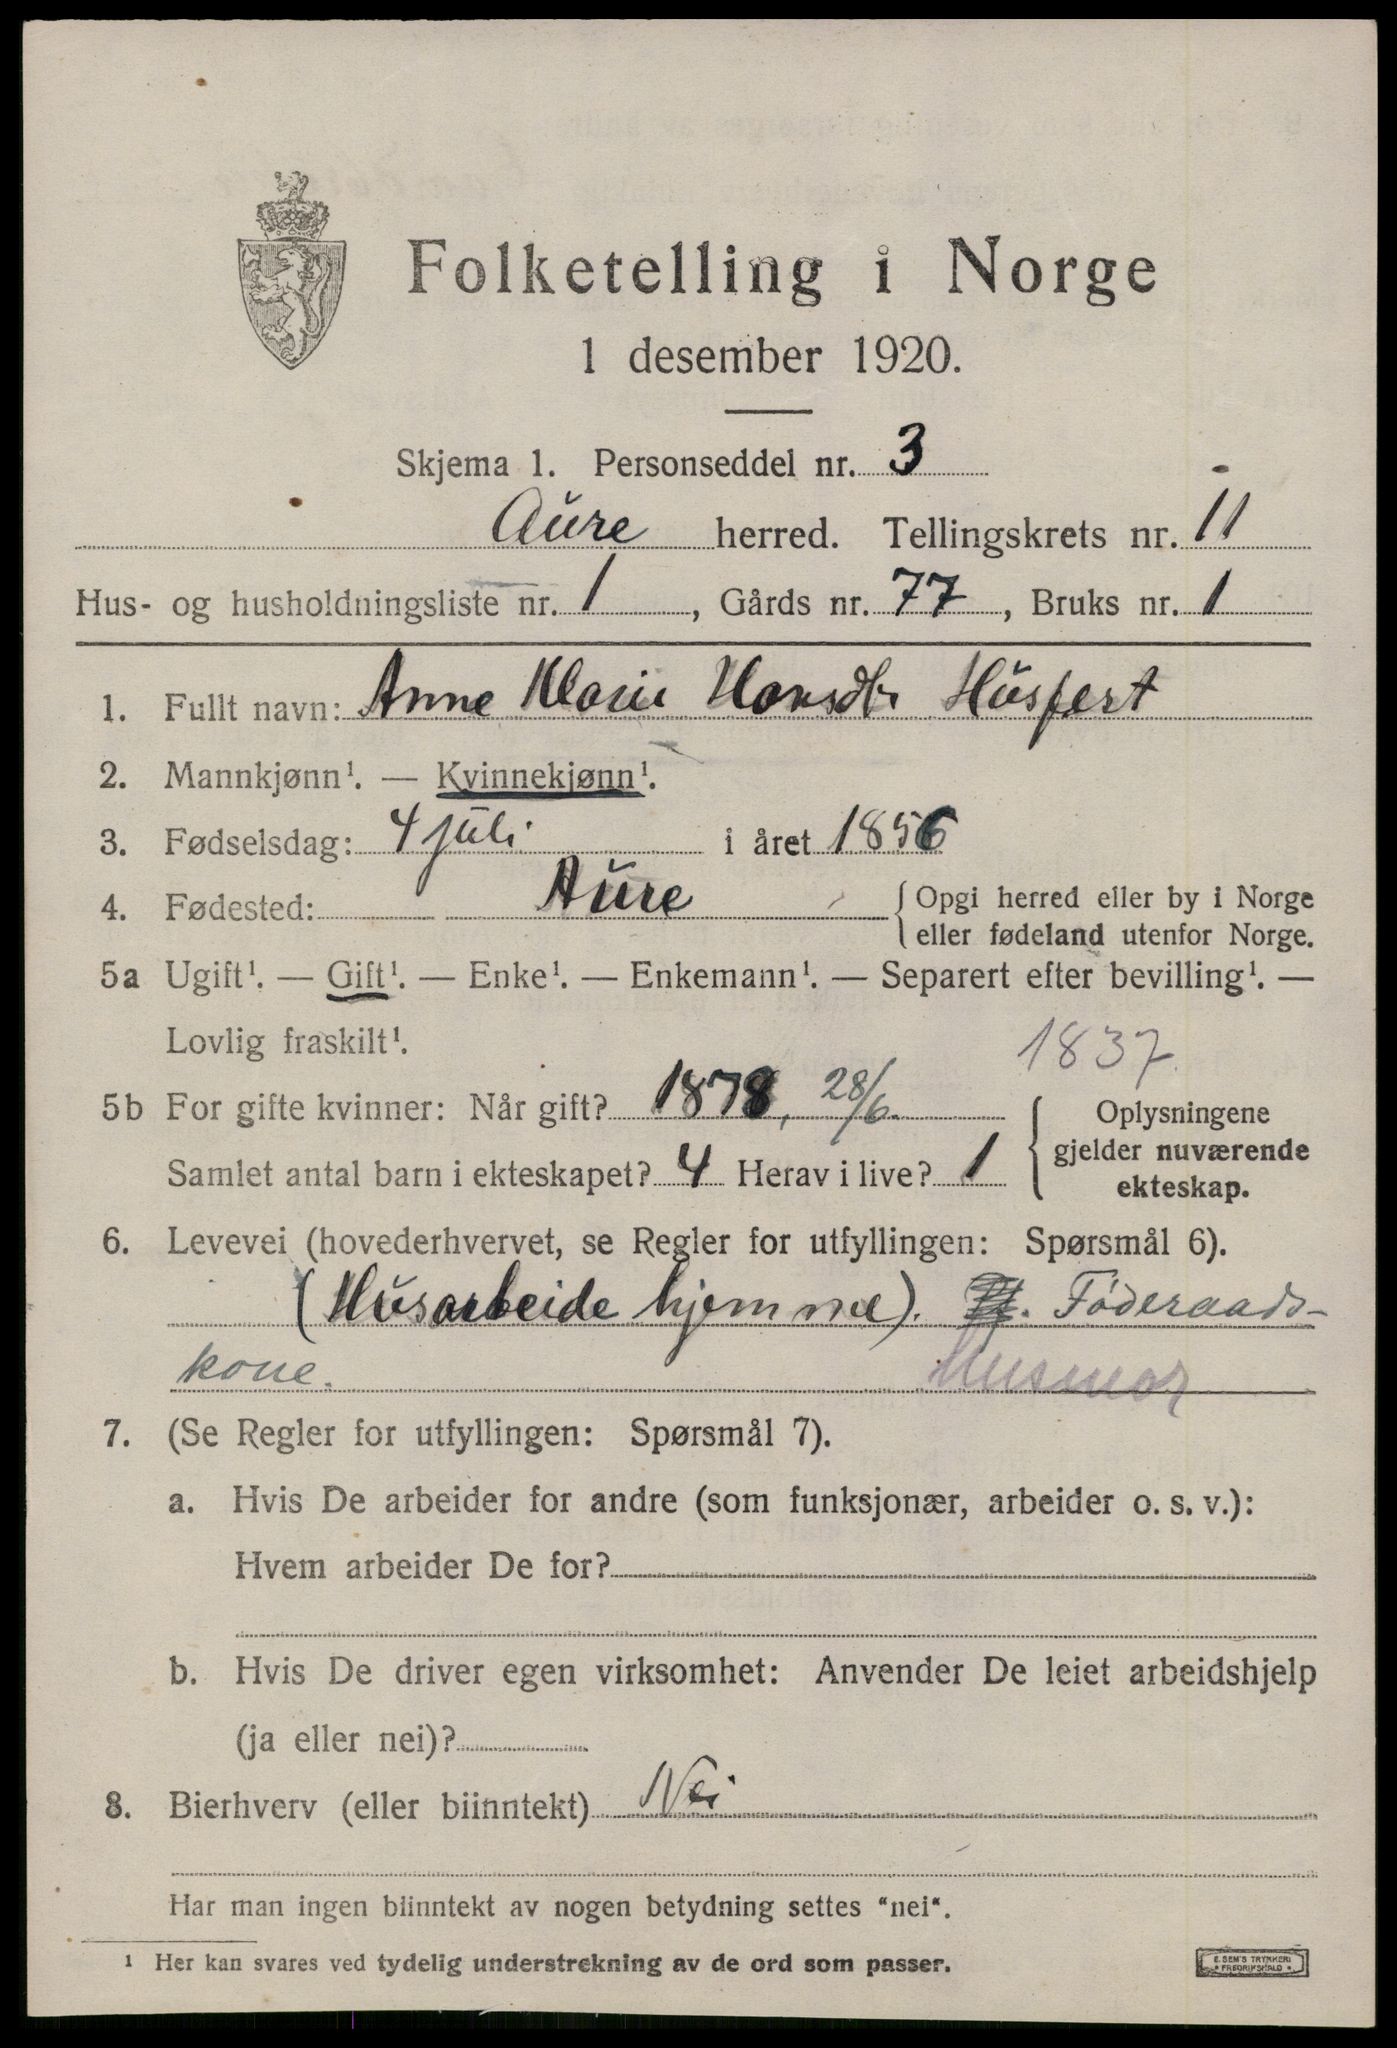 Folketelling i Norge
1 desember 1920.
Skjema 1. Personseddel nr. 3
Aure herred. Tellingskrets nr. 11
Hus- og husholdningsliste nr. 1, Gårds nr. 77, Bruks nr. 1
1. Fullt navn: Anne Marie Hansdtr Husfest
2. Mannkjønn¹. — Kvinnekjønn¹.
3. Fødselsdag: 4 juli i året 1856
4. Fødested: Aure { Opgi herred eller by i Norge
eller fødeland utenfor Norge.
5a Ugift¹. — Gift¹. — Enke¹. — Enkemann¹. — Separert efter bevilling¹. —
Lovlig fraskilt¹. 1837.
5b For gifte kvinner: Når gift? 1878, 28/6.
Samlet antal barn i ekteskapet? 4 Herav i live? 1
{ Oplysningene
gjelder nuværende
ekteskap.
6. Levevei (hovederhvervet, se Regler for utfyllingen: Spørsmål 6).
(Husarbeide hjemme). Föderaads-
kone. Husmor
7. (Se Regler for utfyllingen: Spørsmål 7).
a. Hvis De arbeider for andre (som funksjonær, arbeider o. s. v.):
Hvem arbeider De for?
b. Hvis De driver egen virksomhet: Anvender De leiet arbeidshjelp
(ja eller nei)?
8. Bierhverv (eller biinntekt) Nei
Har man ingen biinntekt av nogen betydning settes "nei".
¹ Her kan svares ved tydelig understrekning av de ord som passer.
E. SEM'S TRYKKERI
* FREDRIKSHALD *